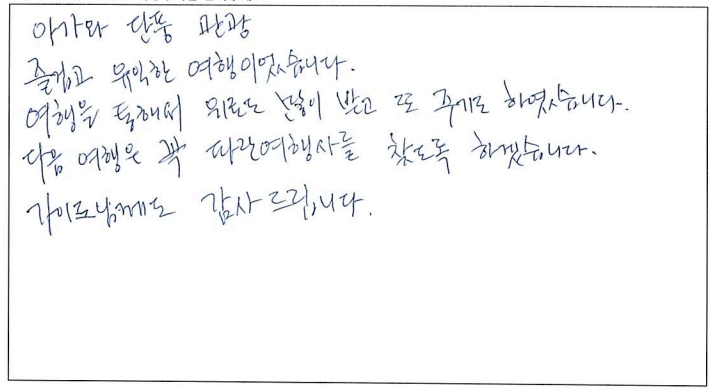 아가와 단풍 관광
즐겁고 유익한 여행이었습니다.
여행을 통해서 위로도 많이 받고 또 주기도 하였습니다.
다음 여행은 꼭 파란여행사를 찾도록 하겠습니다.
가이드님께도 감사드립니다.